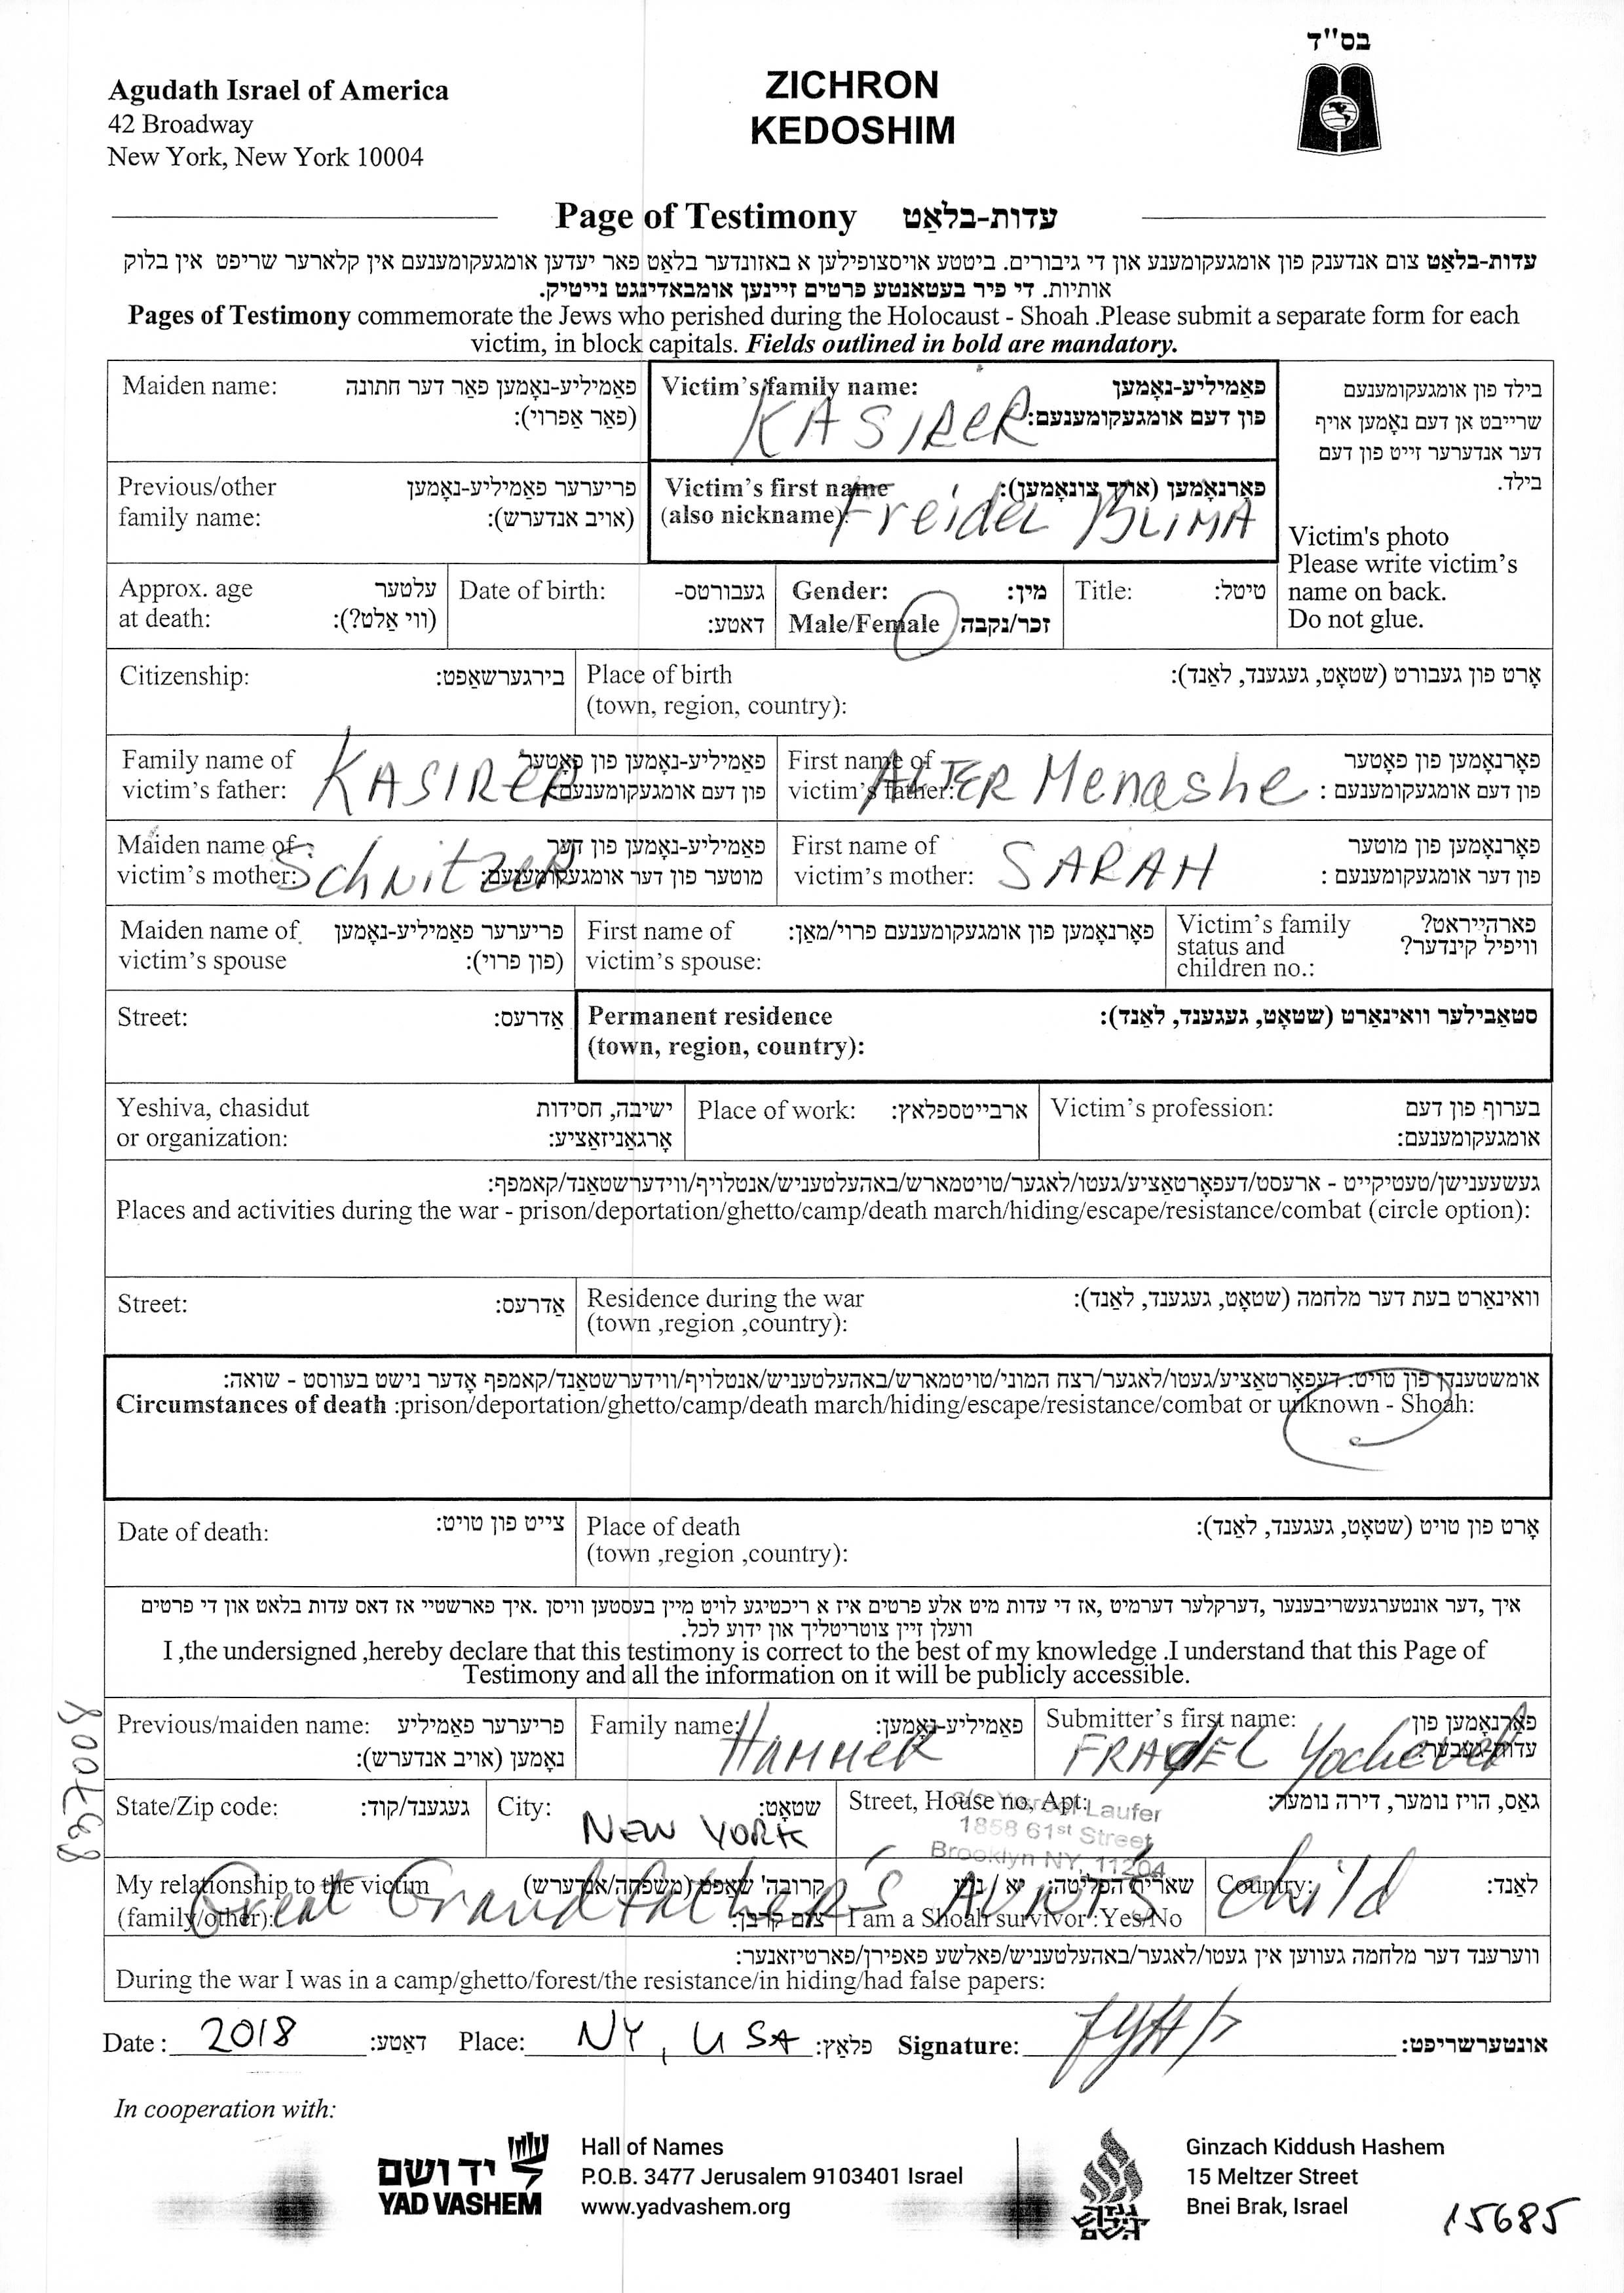 בס"ד
Agudath Israel of America
42 Broadway
New York, New York 10004
ZICHRON
KEDOSHIM
Page of Testimony עדות-בלאַט
עדות-בלאַט צום אנדענק פון אומגעקומענע און די גיבורים. ביטטע אויסצופילען א באזונדער בלאַט פאר יעדען אומגעקומענעם אין קלארער שריפט אין בלוק
אותיות. די פיר בעטאנטע פרטים זיינען אומבאדינגט נייטיק.
Pages of Testimony commemorate the Jews who perished during the Holocaust - Shoah .Please submit a separate form for each
victim, in block capitals. Fields outlined in bold are mandatory.
Maiden name: פאַמיליע-נאָמען פאַר דער חתונה
(פאר אַפרוי):
Victim's family name: פאַמיליע-נאָמען
פון דעם אומגעקומענעם:
KASIRER
בילד פון אומגעקומענעם
שרייבט אן דעם נאָמען אויף
דער אנדערער זייט פון דעם
בילד.
Victim's photo
Please write victim's
name on back.
Do not glue.
Previous/other פריערער פאַמיליע-נאָמען
family name: (אויב אנדערש):
Victim's first name פאָרנאָמען (אויך צונאָמען):
(also nickname):
Freidel BLIMA
Approx. age עלטער
at death: (ווי אַלט?):
Date of birth: געבורטס-
דאטע:
Gender: מין:
Male/Female זכר/נקבה
Title: טיטל:
Citizenship: בירגערשאַפט:
Place of birth אָרט פון געבורט (שטאָט, געגענד, לאַנד):
(town, region, country):
Family name of פאַמיליע-נאָמען פון פאָטער
victim's father: פון דעם אומגעקומענעם:
KASIRER
First name of פאָרנאָמען פון פאָטער
victim's father: פון דעם אומגעקומענעם :
ALTER Menashe
Maiden name of פאַמיליע-נאָמען פון דער
victim's mother: מוטער פון דער אומגעקומענעם:
Schnitzer
First name of פאָרנאָמען פון מוטער
victim's mother: פון דער אומגעקומענעם :
SARAH
Maiden name of פריערער פאַמיליע-נאָמען
victim's spouse (פון פרוי):
First name of פאָרנאָמען פון אומגעקומענעם פרוי/מאַן:
victim's spouse:
Victim's family פארהייראט?
status and וויפיל קינדער?
children no.:
Street: אַדרעס:
Permanent residence סטאַבילער וואוינאָרט (שטאָט, געגענד, לאַנד):
(town, region, country):
Yeshiva, chasidut ישיבה, חסידות
or organization: אָרגאַניזאַציע:
Place of work: ארבייטספלאץ:
Victim's profession: בערוף פון דעם
אומגעקומענעם:
געשעענישן/טעטיקייט - ארעסט/דעפאָרטאַציע/געטו/לאגער/טויטמארש/באהעלטעניש/אנטלויף/ווידערשטאַנד/קאמפף:
Places and activities during the war - prison/deportation/ghetto/camp/death march/hiding/escape/resistance/combat (circle option):
Street: אַדרעס:
Residence during the war וואוינאָרט בעת דער מלחמה (שטאָט, געגענד, לאַנד):
(town ,region ,country):
אומשטענדן פון טויט: דעפאָרטאַציע/געטו/לאגער/רצח המוני/טויטמארש/באהעלטעניש/אנטלויף/ווידערשטאַנד/קאמפף אָדער נישט בעווסט - שואה:
Circumstances of death :prison/deportation/ghetto/camp/death march/hiding/escape/resistance/combat or unknown - Shoah:
Date of death: צייט פון טויט:
Place of death אָרט פון טויט (שטאָט, געגענד, לאַנד):
(town ,region ,country):
איך ,דער אונטערגעשריבענער ,דערקלער דערמיט ,אז די עדות מיט אלע פרטים איז א ריכטיגע לויט מיין בעסטען וויסן .איך פארשטיי אז דאס עדות בלאט און די פרטים
וועלן זיין צוטריטליך און ידוע לכל.
I ,the undersigned ,hereby declare that this testimony is correct to the best of my knowledge .I understand that this Page of
Testimony and all the information on it will be publicly accessible.
Previous/maiden name: פריערער פאַמיליע
נאָמען (אויב אנדערש):
Family name: פאַמיליע-נאָמען:
Hammer
Submitter's first name: פאָרנאָמען פון
עדות-געבער:
FRADEL Yocheved
State/Zip code: געגענד/קוד:
City: שטאָט:
NEW YORK
Street, House no, Apt: גאַס, הויז נומער, דירה נומער:
Laufer
1858 61st Street
Brooklyn NY, 11204
My relationship to the victim קרובה' שאפט (משפחה/אנדערש)
(family/other): צום קרבן:
שארית הפליטה: יא / ניין
I am a Shoah survivor :Yes/No
Country: לאַנד:
Great Grandfather's AUNT'S child
ווערענד דער מלחמה געווען אין געטו/לאגער/באהעלטעניש/פאלשע פאפירן/פארטיזאנער:
During the war I was in a camp/ghetto/forest/the resistance/in hiding/had false papers:
Date : 2018 דאַטע: Place: NY, USA פלאַץ: Signature: אונטערשריפט:
800768
In cooperation with:
יד ושם
YAD VASHEM
Hall of Names
P.O.B. 3477 Jerusalem 9103401 Israel
www.yadvashem.org
גנזך
קידוש
השם
Ginzach Kiddush Hashem
15 Meltzer Street
Bnei Brak, Israel
15685